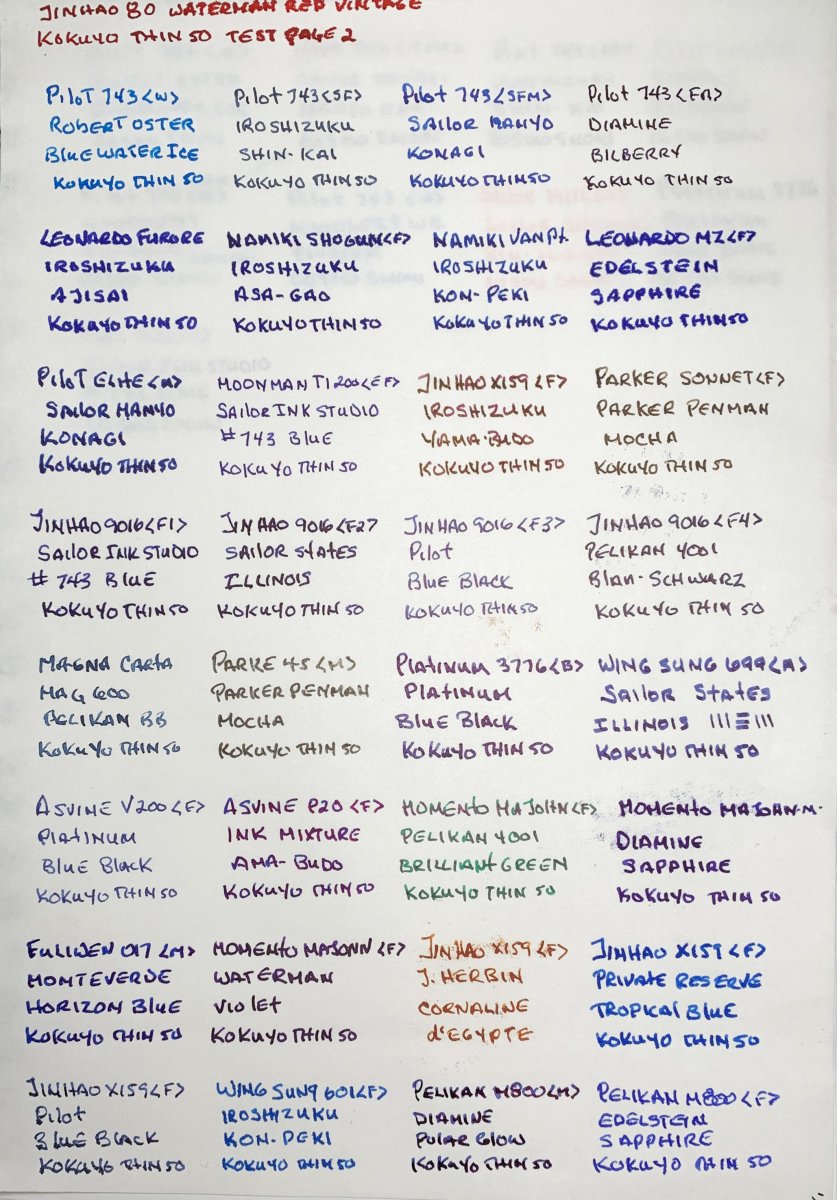 JINHAO 80 WATERMAN RED VINTAGE
KOKUYO THIN 50 TEST PAGE 2
PILOT 743 <W>
ROBERT OSTER
BLUE WATER ICE
KOKUYO THIN 50
PILOT 743 <SF>
IROSHIZUKU
SHIN-KAI
KOKUYO THIN 50
PILOT 743 <SFM>
SAILOR MANYO
KONAGI
KOKUYO THIN 50
PILOT 743 <FA>
DIAMINE
BILBERRY
KOKUYO THIN 50
LEONARDO FURORE
IROSHIZUKU
AJISAI
KOKUYO THIN 50
NAMIKI SHOGUN <F>
IROSHIZUKU
ASA-GAO
KOKUYO THIN 50
NAMIKI VANPt.
IROSHIZUKU
KON-PEKI
KOKUYO THIN 50
LEONARDO MZ <F>
EDELSTEIN
SAPPHIRE
KOKUYO THIN 50
PILOT ELITE <M>
SAILOR MANYO
KONAGI
KOKUYO THIN 50
MOONMAN T1 200 <EF>
SAILOR INK STUDIO
# 743 BLUE
KOKUYO THIN 50
JINHAO X159 <F>
IROSHIZUKU
YAMA-BUDO
KOKUYO THIN 50
PARKER SONNET <F>
PARKER PENMAN
MOCHA
KOKUYO THIN 50
JINHAO 9016 <F1>
SAILOR INK STUDIO
# 743 BLUE
KOKUYO THIN 50
JINHAO 9016 <F2>
SAILOR STATES
ILLINOIS
KOKUYO THIN 50
JINHAO 9016 <F3>
PILOT
BLUE BLACK
KOKUYO THIN 50
JINHAO 9016 <F4>
PELIKAN 4001
BLAN-SCHWARZ
KOKUYO THIN 50
MAGNA CARTA
MAG 600
PELIKAN BB
KOKUYO THIN 50
PARKE 45 <M>
PARKER PENMAN
MOCHA
KOKUYO THIN 50
PLATINUM 3776 <B>
PLATINUM
BLUE BLACK
KOKUYO THIN 50
WING SUNG 699 <M>
SAILOR STATES
ILLINOIS
KOKUYO THIN 50
ASVINE V200 <F>
PLATINUM
BLUE BLACK
KOKUYO THIN 50
ASVINE P20 <F>
INK MIXTURE
AMA-BUDO
KOKUYO THIN 50
MOMENTO MAJOHN <F>
PELIKAN 4001
BRILLIANT GREEN
KOKUYO THIN 50
MOMENTO MAJOHN-M-
DIAMINE
SAPPHIRE
KOKUYO THIN 50
FULIWEN 017 <M>
MONTEVERDE
HORIZON BLUE
KOKUYO THIN 50
MOMENTO MAJONN <F>
WATERMAN
VIOLET
KOKUYO THIN 50
JINHAO X159 <F>
J. HERBIN
CORNALINE
d'EGYPTE
JINHAO X159 <F>
PRIVATE RESERVE
TROPICAL BLUE
KOKUYO THIN 50
JINHAO X159 <F>
PILOT
BLUE BLACK
KOKUYO THIN 50
WING SUNG 601 <F>
IROSHIZUKU
KON-PEKI
KOKUYO THIN 50
PELIKAN M800 <M>
DIAMINE
POLAR GLOW
KOKUYO THIN 50
PELIKAN M800 <F>
EDELSTEIN
SAPPHIRE
KOKUYO THIN 50